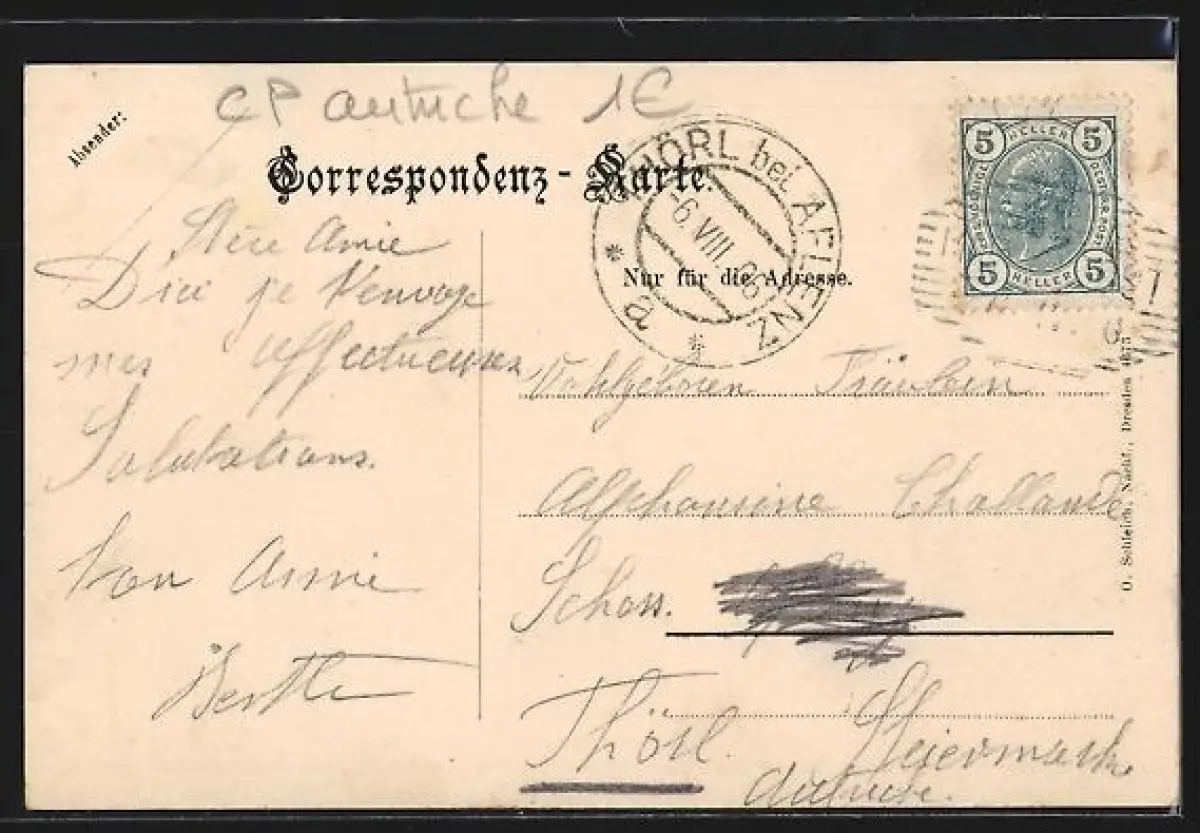 CP autriche 1€
Absender:
Correspondenz-Karte.
THÖRL bei AFLENZ
-6.VIII
* a *
5 HELLER 5
5 HELLER 5
Nur für die Adresse.
Amie
D'ici je t'envoye
mes affectueuses
Salutations.
Ton Amie
Berthe
Wohlgeboren Fräulein
Alphonsine Challande
Schloss.
Thörl. Steiermark
Autriche.
O. Schleich. Nachf., Dresden